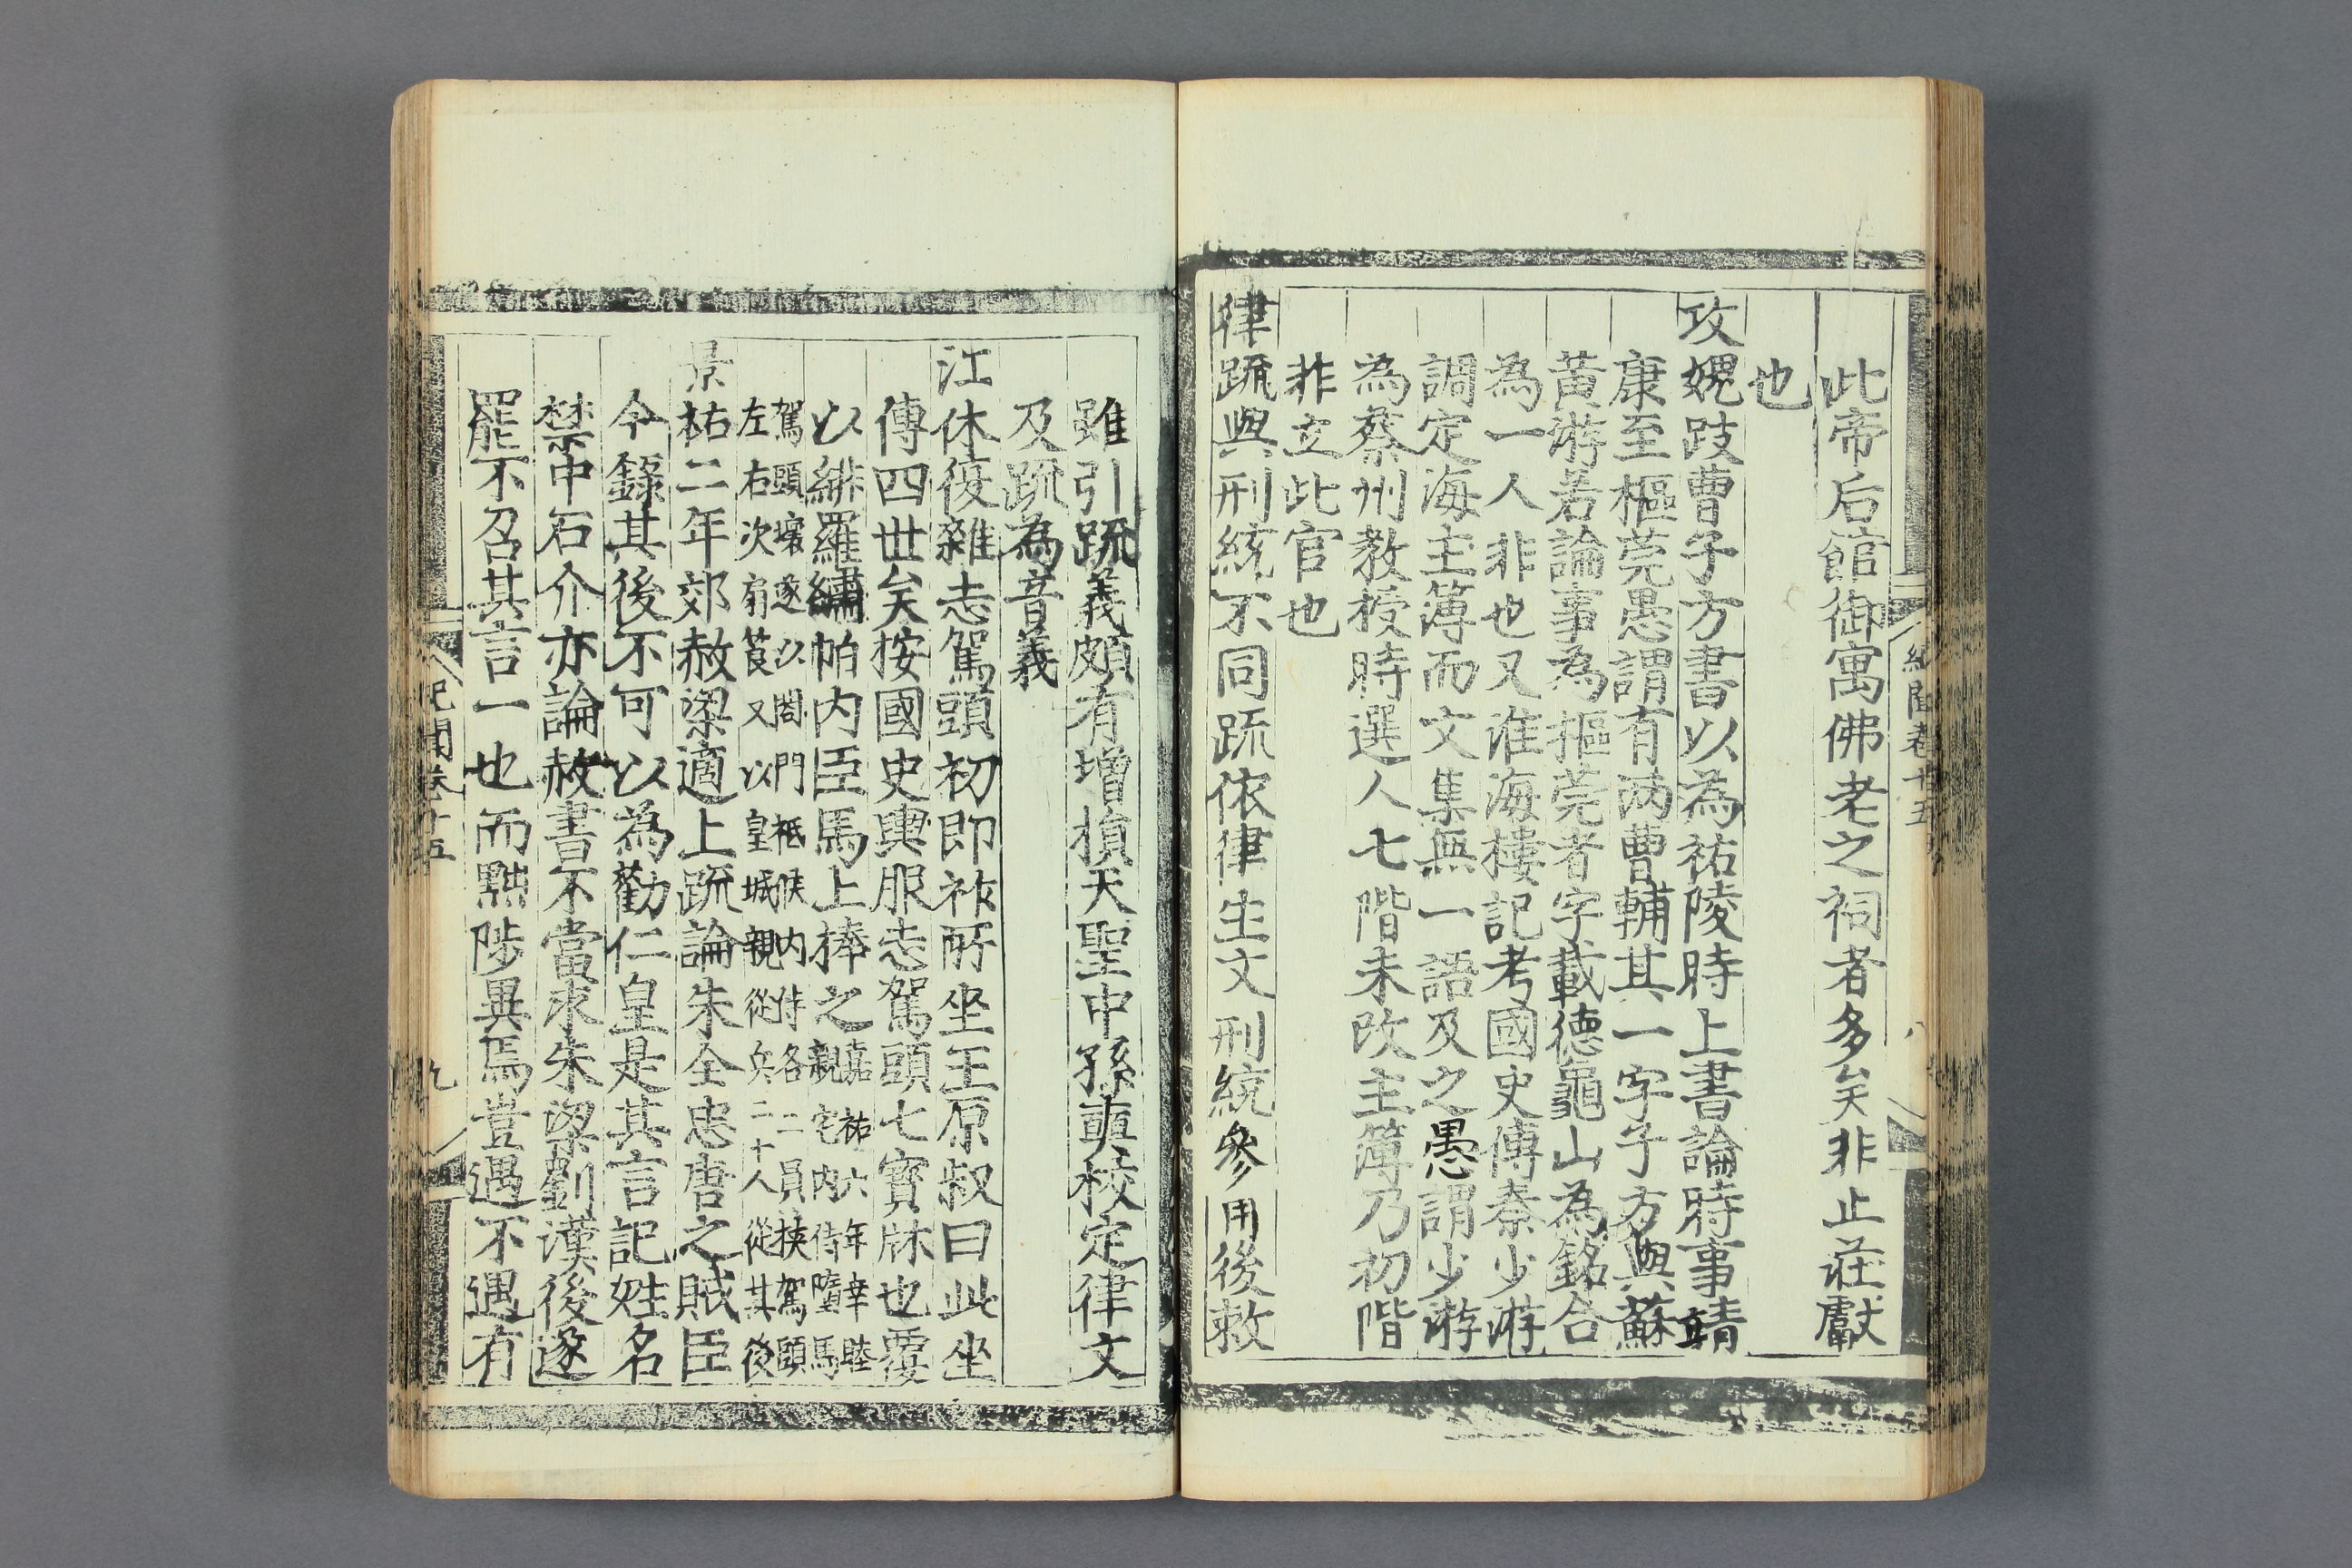 紀聞卷十五
八
此帝后館御寓佛老之祠者多矣非止莊獻
也
攻媿跋曹子方書以為祐陵時上書論時事靖
康至樞莞愚謂有两曹輔其一字子方與蘇
黃游若論事為摳莞者字載德龜山為銘合
為一人非也又淮海樓記考國史傳秦少游
調定海主簿而文集無一語及之愚謂少游
為蔡州教授時選人七階未改主簿乃初階
非立此官也
律疏與刑統不同疏依律生文刑統參用後敕
雖引疏義頗有增損天聖中孫奭校定律文
及疏為音義
江休復雜志駕頭初即祚所坐王原叔曰此坐
傳四世矣按國史輿服志駕頭七寳牀也覆
以緋羅繡帕内臣馬上捧之嘉祐六年幸睦
親宅内侍墮馬
駕頭壞遂以閤門祗候内侍各二員挾駕頭
左右次扇筤又以皇城親從兵二十人從其後
景祐二年郊赦梁適上疏論朱全忠唐之賊臣
今錄其後不可以為勸仁皇是其言記姓名
禁中石介亦論赦書不當求朱梁劉漢後遂
罷不召其言一也而黜陟異焉豈遇不遇有
紀聞卷十五
九